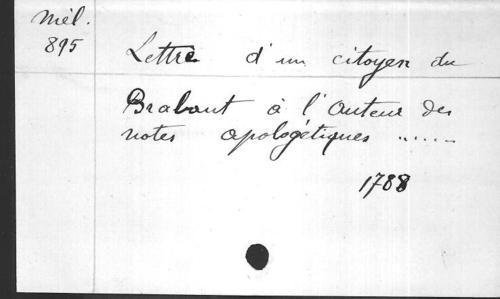 Mél.
895
Lettre d'un citoyen du
Brabant à l'Auteur des
notes apologétiques ......
1788